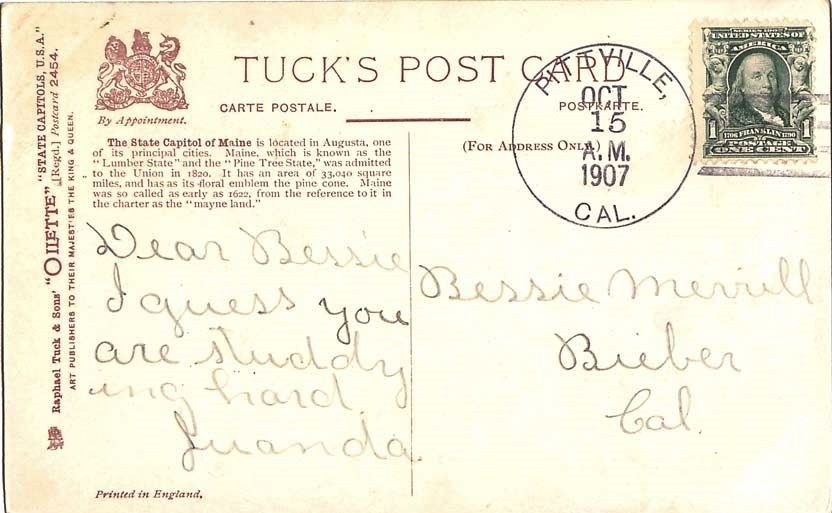 "STATE CAPITOLS, U.S.A."
Raphael Tuck & Sons' "OILETTE" [Regd.] Postcard 2454.
ART PUBLISHERS TO THEIR MAJESTIES THE KING & QUEEN.
By Appointment.
TUCK'S POST CARD
CARTE POSTALE.
POSTKARTE.
(FOR ADDRESS ONLY.)
The State Capitol of Maine is located in Augusta, one
of its principal cities. Maine, which is known as the
"Lumber State" and the "Pine Tree State," was admitted
to the Union in 1820. It has an area of 33,040 square
miles, and has as its floral emblem the pine cone. Maine
was so called as early as 1622, from the reference to it in
the charter as the "mayne land."
PITTVILLE,
OCT
15
A.M.
1907
CAL.
SERIES 1902
UNITED STATES OF
AMERICA
1706 FRANKLIN 1790
1 1
POSTAGE
ONE CENT
Dear Bessie
I guess you
are studdy
ing hard
Juanda.
Bessie Merrill
Bieber
Cal.
Printed in England.